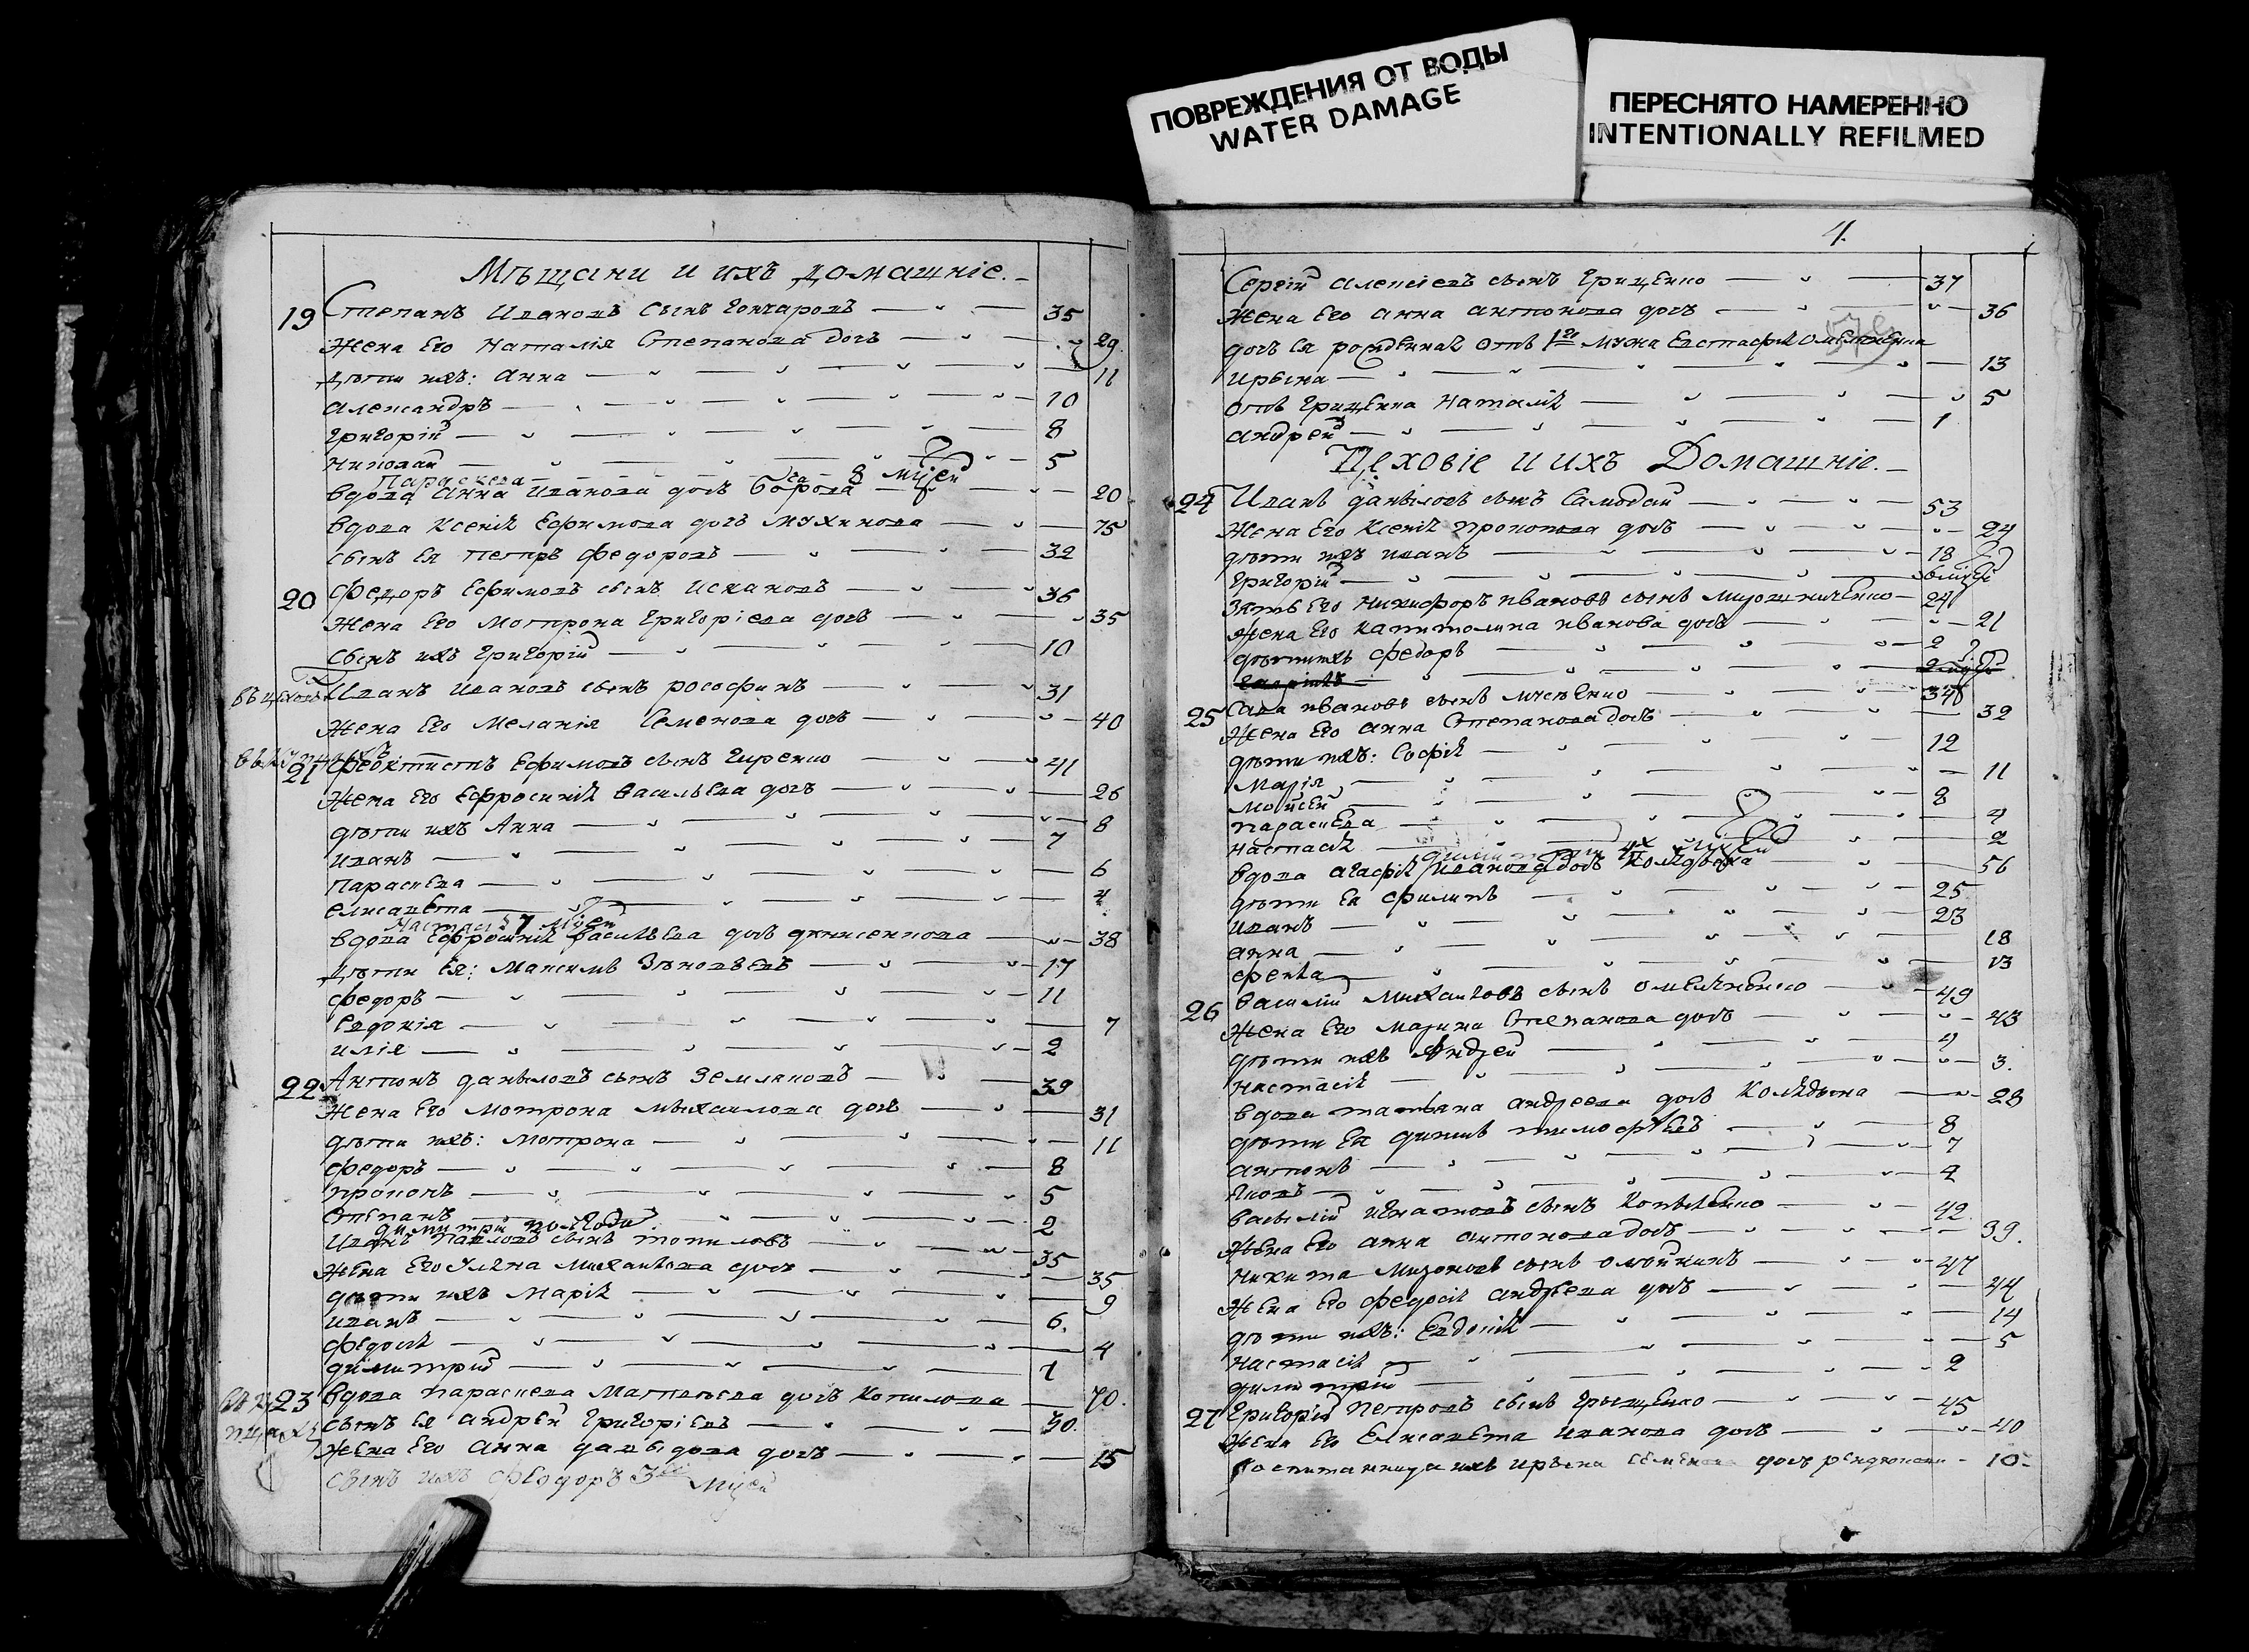 ПОВРЕЖДЕНИЯ ОТ ВОДЫ
WATER DAMAGE
ПЕРЕСНЯТО НАМЕРЕННО
INTENTIONALLY REFILMED
Мѣщани и ихъ домашніе.
19 Степанъ Ивановъ сынъ Гончаровъ 35
Жена его Наталія Степанова дочь 29
Дѣти ихъ: Анна 11
Александръ 10
Григорій 8
Николай 5
Параскева 8 мцей
Вдова Анна Иванова дочь 20
Вдова Ксенія Ефимова дочь Мухинова 75
Сынъ ея Петръ Федоровъ 32
20 Федоръ Ефимовъ сынъ Искановъ 36
Жена его Мотрона Григоріева дочь 35
Сынъ ихъ Григорій 10
Иванъ Ивановъ сынъ 31
Жена его Меланія Семенова дочь 40
21 Феоктистъ Ефимовъ сынъ 41
Жена его Ефросинія Васильева дочь 26
Дѣти ихъ Анна 8
Иванъ 7
Параскева 6
Елисавета 4
Настасія 7 мцей
Вдова Ефросинія Васильева дочь 38
Дѣти ея: Максимъ 17
Федоръ 11
Евдокія 7
Илія 2
22 Антонъ Даниловъ сынъ Земляновъ 39
Жена его Мотрона Михайлова дочь 31
Дѣти ихъ: Мотрона 11
Федоръ 8
Прокопъ 5
Степанъ 2
Димитрій полгода
Иванъ Павловъ сынъ Топиловъ 35
Жена его Уляна Михайлова дочь 35
Дѣти ихъ Марія 9
Иванъ 6
Федосія 4
Димитрій 1
23 Вдова Параскева Матвѣева дочь Копилова 70
Сынъ ея Андрей Григоріевъ 30
Жена его Анна Давыдова дочь 15
Сынъ ихъ Феодоръ 3 мцей
4.
Сергій Алексіевъ сынъ Гриценко 37
Жена его Анна Антонова дочь 36
Дочь ея рожденная отъ 1го мужа Евстафія Омеляненка
Ирына 13
Отъ Гриценка Наталія 5
Андрей 1
Цеховіе и ихъ Домашніе.
24 Иванъ Даниловъ сынъ Самодай 53
Жена его Ксенія Прокопова дочь 24
Дѣти ихъ Иванъ 18
Григорій
Зять его Никифоръ Ивановъ сынъ Мирошниченко 24
Жена его Капитолина Иванова дочь 21
Дѣти ихъ Федоръ 2
25 Сава Ивановъ сынъ 34
Жена его Анна Степанова дочь 32
Дѣти ихъ: Софія 12
Марія 11
Мойсей 8
Параскева 4
Настасія 2
Вдова Агафія Иванова дочь 56
Дѣти ея Филипъ 25
Иванъ 23
Анна 18
Фекла 13
26 Василій Михайловъ сынъ Омеляненко 49
Жена его Марина Степанова дочь 43
Дѣти ихъ Андрей 9
Настасія 3
Вдова Татьяна Андреева дочь 28
Дѣти ея Тимофѣевъ 8
Антонъ 7
Яковъ 4
Василій Игнатовъ сынъ 42
Жена его Анна Антонова дочь 39
Никита Мироновъ сынъ 47
Жена его Федосія Андреева дочь 44
Дѣти ихъ: Евдокія 14
Настасія 5
Димитрій 2
27 Григорій Петровъ сынъ Грыценко 45
Жена его Елисавета Иванова дочь 40
Воспитанница ихъ Ирына Семенова дочь 10